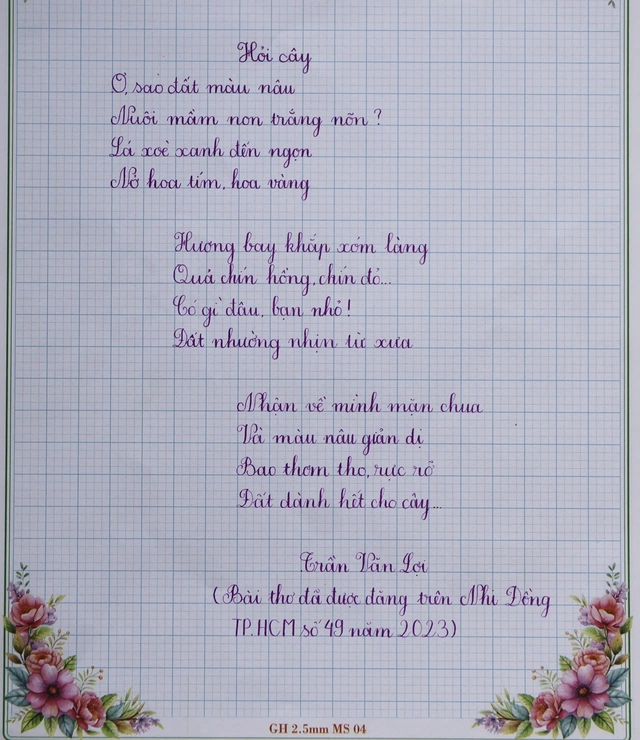 Hỏi cây
Ơ, sao đất màu nâu
Nuôi mầm non trắng nõn?
Lá xoè xanh đến ngọn
Nở hoa tím, hoa vàng
Hương bay khắp xóm làng
Quả chín hồng, chín đỏ...
Có gì đâu, bạn nhỏ!
Đất nhường nhịn từ xưa
Nhận về mình mặn chua
Và màu nâu giản dị
Bao thơm tho, rực rỡ
Đất dành hết cho cây...
Trần Văn Lợi
(Bài thơ đã được đăng trên Nhi Đồng
TP.HCM số 49 năm 2023)
GH 2.5mm MS 04